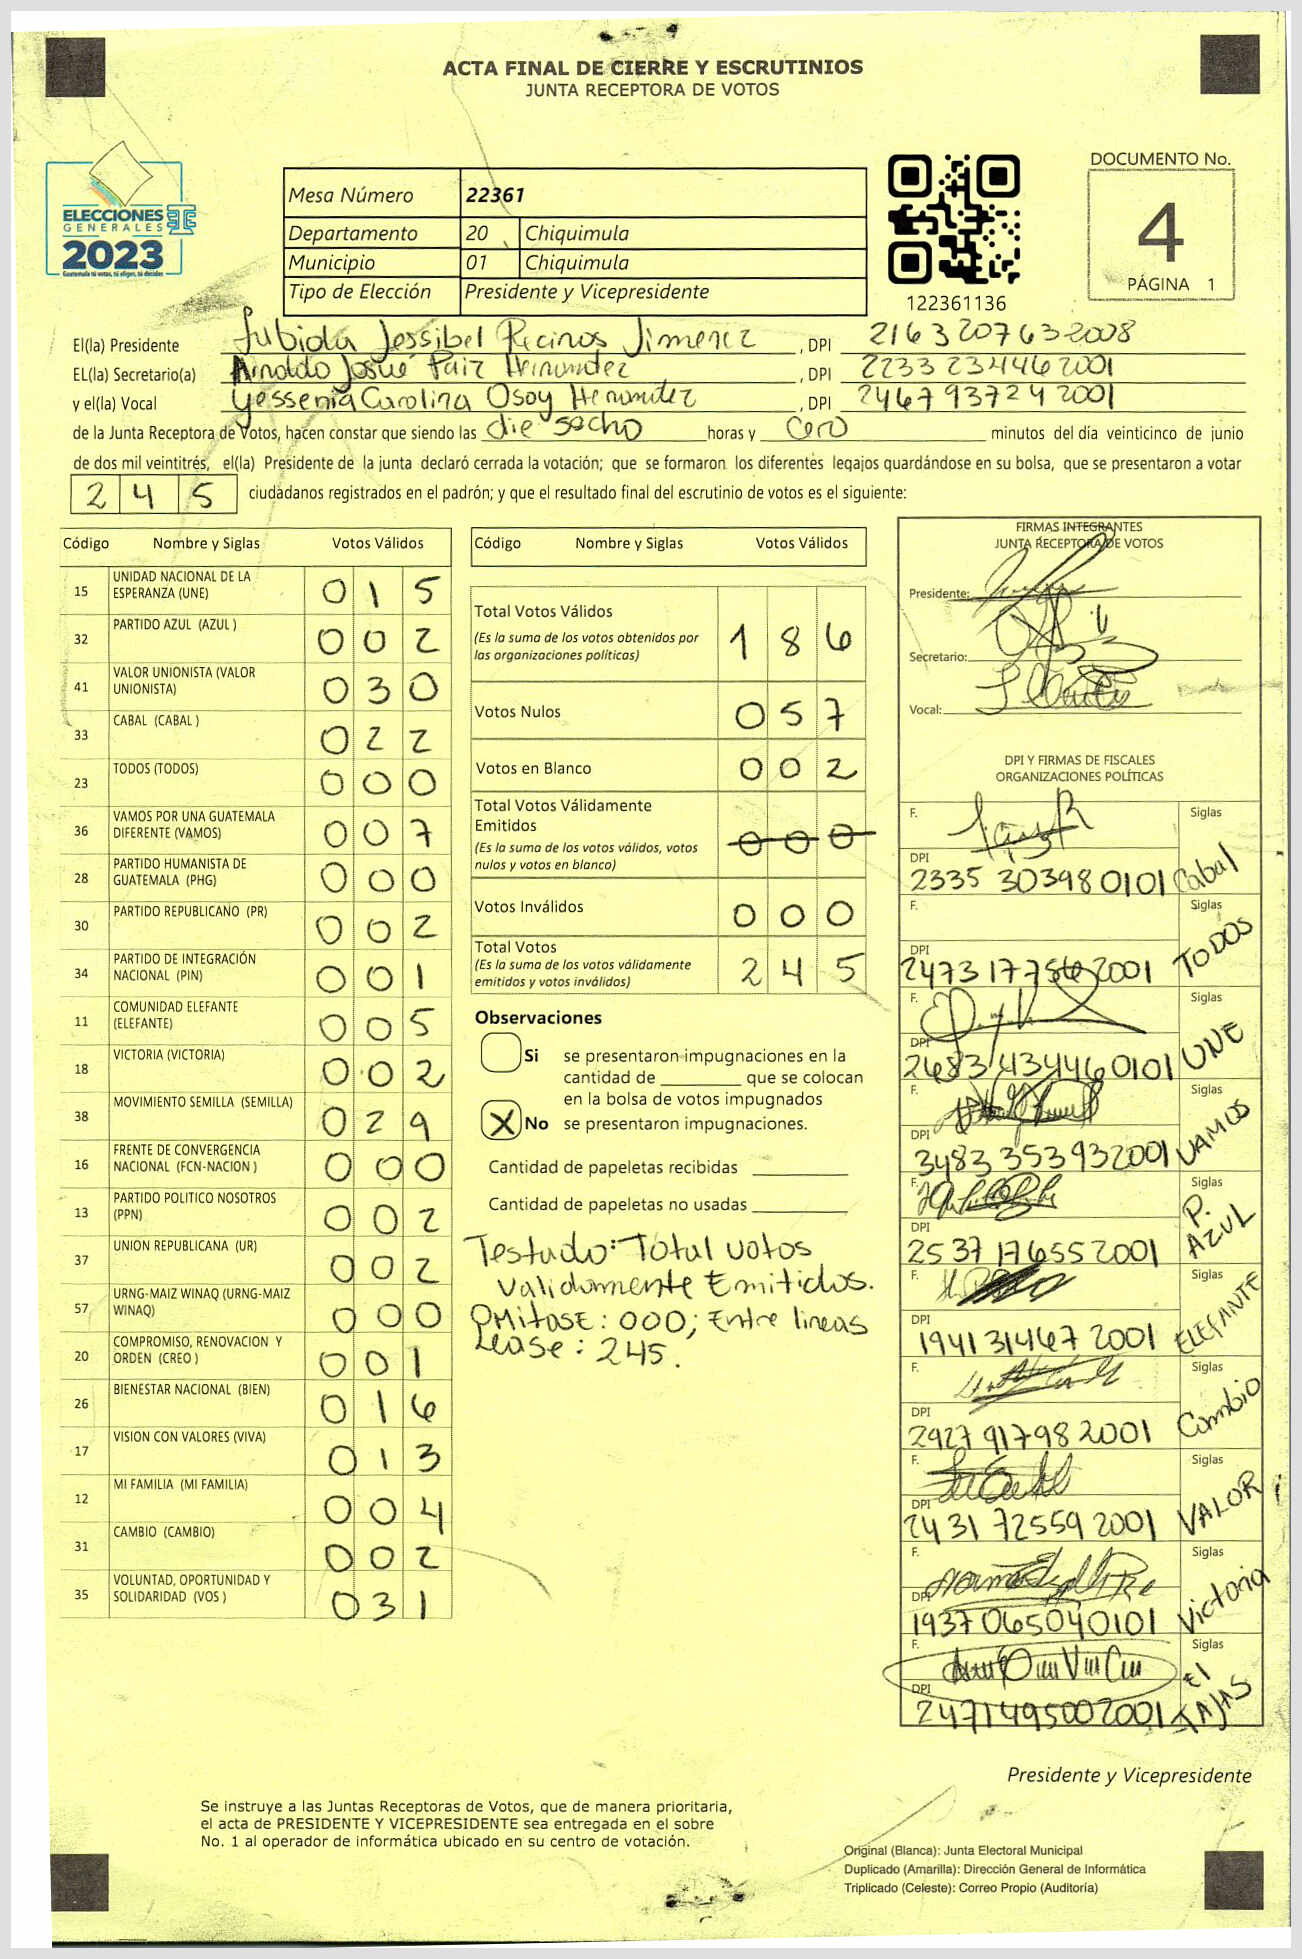 ACTA FINAL DE CIERRE Y ESCRUTINIOS
JUNTA RECEPTORA DE VOTOS
ELECCIONES
GENERALES
2023
Guatemala tú votas, tú eliges, tú decides
Mesa Número 22361
Departamento 20 Chiquimula
Municipio 01 Chiquimula
Tipo de Elección Presidente y Vicepresidente
122361136
DOCUMENTO No.
4
PÁGINA 1
El(la) Presidente Jessibel Recinos Jimenez, DPI 2163 20763 2008
EL(la) Secretario(a) Arnoldo Josué Paiz Hernandez, DPI 2233 23446 2001
y el(la) Vocal Yessenia Carolina Osoy Hernandez, DPI 2467 93724 2001
de la Junta Receptora de Votos, hacen constar que siendo las dieciocho horas y cero minutos del día veinticinco de junio
de dos mil veintitrés, el(la) Presidente de la junta declaró cerrada la votación; que se formaron los diferentes legajos guardándose en su bolsa, que se presentaron a votar
245 ciudadanos registrados en el padrón; y que el resultado final del escrutinio de votos es el siguiente:
Código Nombre y Siglas Votos Válidos
15 UNIDAD NACIONAL DE LA ESPERANZA (UNE) 015
32 PARTIDO AZUL (AZUL ) 002
41 VALOR UNIONISTA (VALOR UNIONISTA) 030
33 CABAL (CABAL ) 022
23 TODOS (TODOS) 000
36 VAMOS POR UNA GUATEMALA DIFERENTE (VAMOS) 007
28 PARTIDO HUMANISTA DE GUATEMALA (PHG) 000
30 PARTIDO REPUBLICANO (PR) 002
34 PARTIDO DE INTEGRACIÓN NACIONAL (PIN) 001
11 COMUNIDAD ELEFANTE (ELEFANTE) 005
18 VICTORIA (VICTORIA) 002
38 MOVIMIENTO SEMILLA (SEMILLA) 029
16 FRENTE DE CONVERGENCIA NACIONAL (FCN-NACION ) 000
13 PARTIDO POLITICO NOSOTROS (PPN) 002
37 UNION REPUBLICANA (UR) 002
57 URNG-MAIZ WINAQ (URNG-MAIZ WINAQ) 000
20 COMPROMISO, RENOVACION Y ORDEN (CREO ) 001
26 BIENESTAR NACIONAL (BIEN) 016
17 VISION CON VALORES (VIVA) 013
12 MI FAMILIA (MI FAMILIA) 004
31 CAMBIO (CAMBIO) 002
35 VOLUNTAD, OPORTUNIDAD Y SOLIDARIDAD (VOS ) 031
Código Nombre y Siglas Votos Válidos
Total Votos Válidos 186
(Es la suma de los votos obtenidos por
las organizaciones políticas)
Votos Nulos 057
Votos en Blanco 002
Total Votos Válidamente
Emitidos 000
(Es la suma de los votos válidos, votos
nulos y votos en blanco)
Votos Inválidos 000
Total Votos 245
(Es la suma de los votos válidamente
emitidos y votos inválidos)
Observaciones
Si se presentaron impugnaciones en la
cantidad de ________ que se colocan
en la bolsa de votos impugnados
X No se presentaron impugnaciones.
Cantidad de papeletas recibidas
Cantidad de papeletas no usadas
Testado: Total votos
validamente Emitidos.
Omitase: 000; Entre lineas
Lease: 245.
FIRMAS INTEGRANTES
JUNTA RECEPTORA DE VOTOS
Presidente:
Secretario:
Vocal:
DPI Y FIRMAS DE FISCALES
ORGANIZACIONES POLÍTICAS
F. Siglas
DPI
2335 30398 0101 Cabal
F. Siglas
DPI
2473 177 2001 TODOS
F. Siglas
DPI
2683 43446 0101 UNE
F. Siglas
DPI
3483 35393 2001 VAMOS
F. Siglas
DPI
2537 17655 2001 P. AZUL
F. Siglas
DPI
1941 31467 2001 ELEFANTE
F. Siglas
DPI
2927 91798 2001 Cambio
F. Siglas
DPI
2431 72559 2001 VALOR
F. Siglas
DPI
1937 06504 0101 Victoria
F. Siglas
DPI
2471 49500 2001
Presidente y Vicepresidente
Se instruye a las Juntas Receptoras de Votos, que de manera prioritaria,
el acta de PRESIDENTE Y VICEPRESIDENTE sea entregada en el sobre
No. 1 al operador de informática ubicado en su centro de votación.
Original (Blanca): Junta Electoral Municipal
Duplicado (Amarilla): Dirección General de Informática
Triplicado (Celeste): Correo Propio (Auditoría)